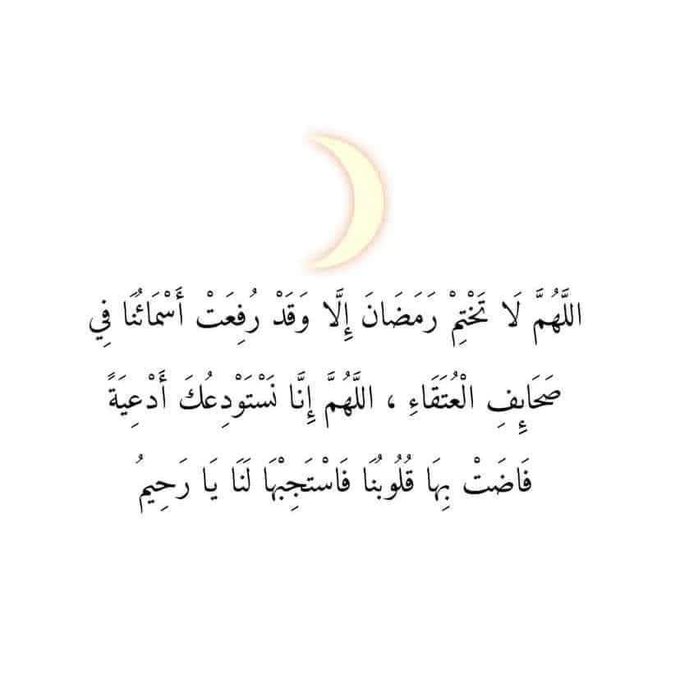 اللَّهُمَّ لَا تَخْتِمْ رَمَضَانَ إِلَّا وَقَدْ رُفِعَتْ أَسْمَائُنَا فِي
صَحَائِفِ الْعُتَقَاءِ ، اللَّهُمَّ إِنَّا نَسْتَوْدِعُكَ أَدْعِيَةً
فَاضَتْ بِهَا قُلُوبُنَا فَاسْتَجِبْهَا لَنَا يَا رَحِيمُ